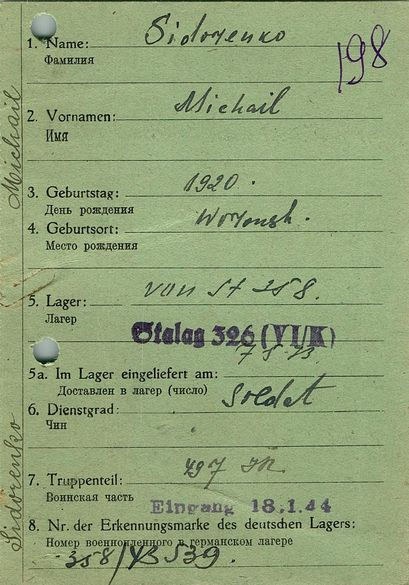 198
1. Name: Sidorenko
Фамилия
2. Vornamen: Michail
Имя
3. Geburtstag: 1920.
День рождения
4. Geburtsort: Woronsh.
Место рождения
5. Lager: von St 358.
Лагер
Stalag 326 (VI/K)
5a. Im Lager eingeliefert am:
Доставлен в лагер (число)
6. Dienstgrad: Soldat
Чин
7. Truppenteil: 497
Воинская часть
Eingang 18.1.44
8. Nr. der Erkennungsmarke des deutschen Lagers:
Номер военнопленного в германском лагере
358/43539.
Sidorenko Michail